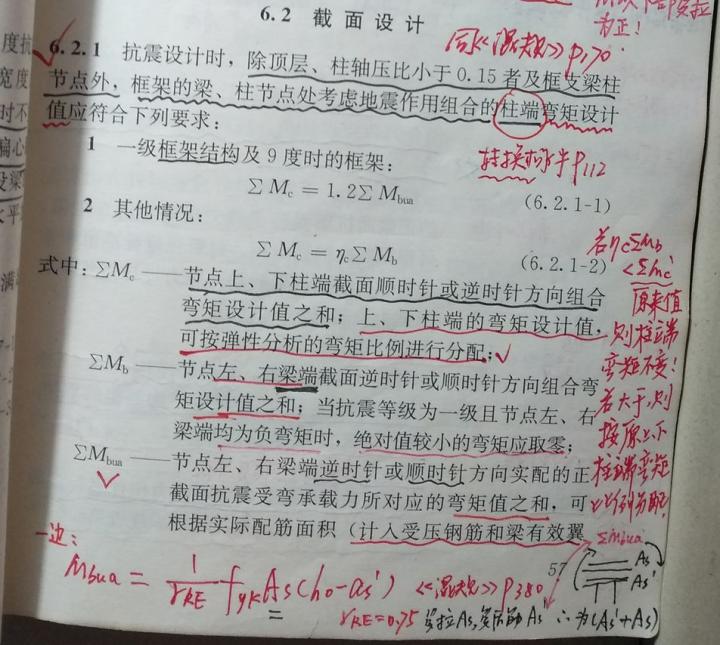 为正!
6.2 截面设计
同《混规》P170.
6.2.1 抗震设计时,除顶层、柱轴压比小于0.15者及框支梁柱
节点外,框架的梁、柱节点处考虑地震作用组合的柱端弯矩设计
值应符合下列要求:
1 一级框架结构及9度时的框架:
转换 P112
∑Mc = 1.2∑Mbua (6.2.1-1)
2 其他情况:
∑Mc = ηc∑Mb (6.2.1-2)
若ηc∑Mb
<∑Mc'
原来值
则柱端
弯矩不变!
若大于,则
按原上下
柱端弯矩
比例分配.
式中:∑Mc——节点上、下柱端截面顺时针或逆时针方向组合
弯矩设计值之和;上、下柱端的弯矩设计值,
可按弹性分析的弯矩比例进行分配;
∑Mb——节点左、右梁端截面逆时针或顺时针方向组合弯
矩设计值之和;当抗震等级为一级且节点左、右
梁端均为负弯矩时,绝对值较小的弯矩应取零;
∑Mbua——节点左、右梁端逆时针或顺时针方向实配的正
截面抗震受弯承载力所对应的弯矩值之和,可
根据实际配筋面积(计入受压钢筋和梁有效翼
57
∑Mbua
As
As'
一边:
Mbua = 1/γRE fyk As(h0-as') 《混规》P380
γRE=0.75 受拉As,受压筋As' ∴为(As'+As)
度抗
宽度
时不
偏心
设梁
水平
满